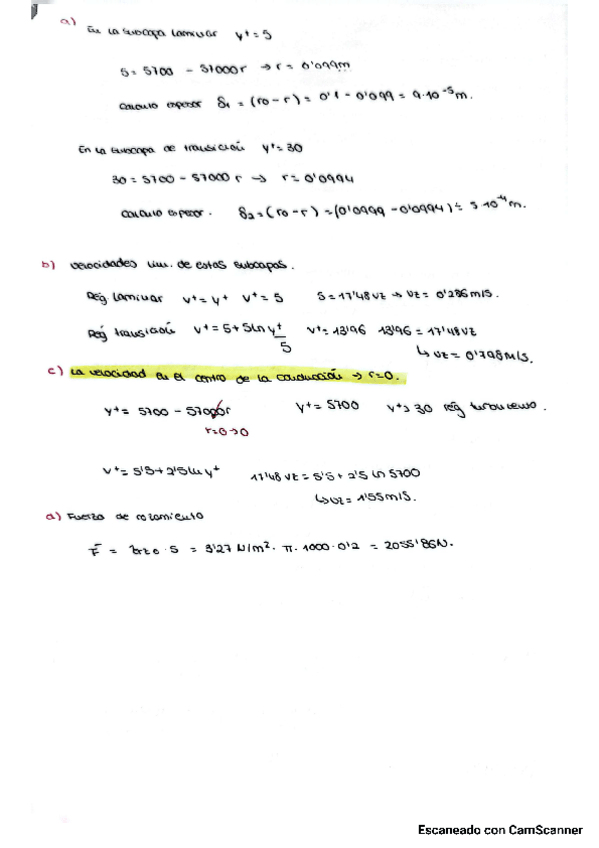 a) En la subcapa laminar y+ = 5
5 = 5700 - 57000 r → r = 0'099m
Calculo espesor δ1 = (ro - r) = 0'1 - 0'099 = 9·10-5m.
En la subcapa de transición y+ = 30
30 = 5700 - 57000 r → r = 0'0994
Calculo espesor. δ2 = (ro - r) = (0'0999 - 0'0994) = 5·10-4m.
b) velocidades lim. de estas subcapas.
Reg laminar v+ = y+ v+ = 5 5 = 17'48 vz → vz = 0'286 m/s.
Reg transición v+ = 5 + 5 ln y+/5 v+ = 13'96 13'96 = 17'48 vz
↳ vz = 0'798 m/s.
c) La velocidad en el centro de la conducción → r=0.
y+ = 5700 - 57000r y+ = 5700 y+ > 30 reg turbulento.
r=0→0
v+ = 5'5 + 2'5 ln y+ 17'48 vz = 5'5 + 2'5 ln 5700
↳ vz = 1'55 m/s.
d) Fuerza de rozamiento
F = τrz0 · S = 3'27 N/m2 · π · 1000 · 0'2 = 2055'86N.
Escaneado con CamScanner